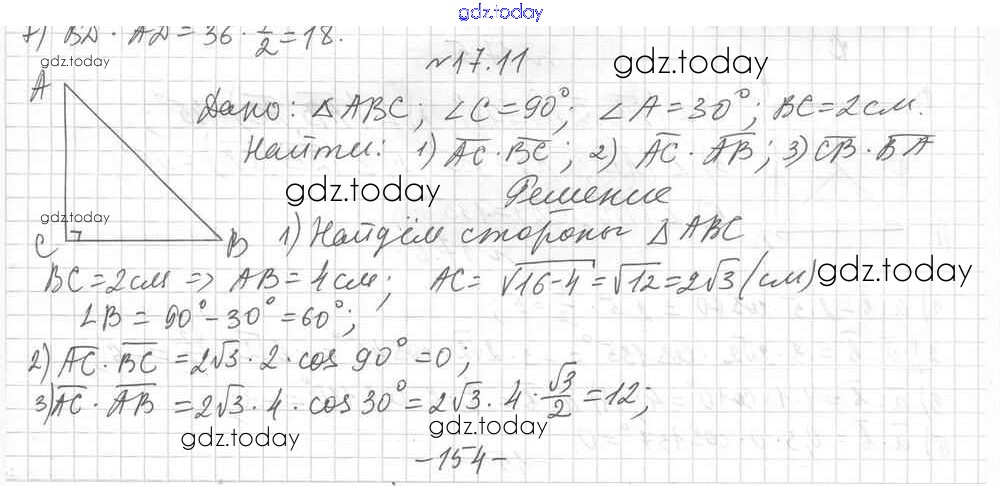 gdz.today
7) BD · AD = 36 · 1/2 = 18.
gdz.today
№17.11
gdz.today
A
Дано: △ABC; ∠C = 90°; ∠A = 30°; BC = 2 см.
Найти: 1) A̅C̅ · B̅C̅; 2) A̅C̅ · A̅B̅; 3) C̅B̅ · B̅A̅
gdz.today
Решение
gdz.today
C
B
1) Найдём стороны △ABC
BC = 2 см => AB = 4 см; AC = √(16-4) = √12 = 2√3 (см)
gdz.today
∠B = 90° - 30° = 60°;
2) A̅C̅ · B̅C̅ = 2√3 · 2 · cos 90° = 0;
3) A̅C̅ · A̅B̅ = 2√3 · 4 · cos 30° = 2√3 · 4 · √3/2 = 12;
gdz.today
gdz.today
-154-